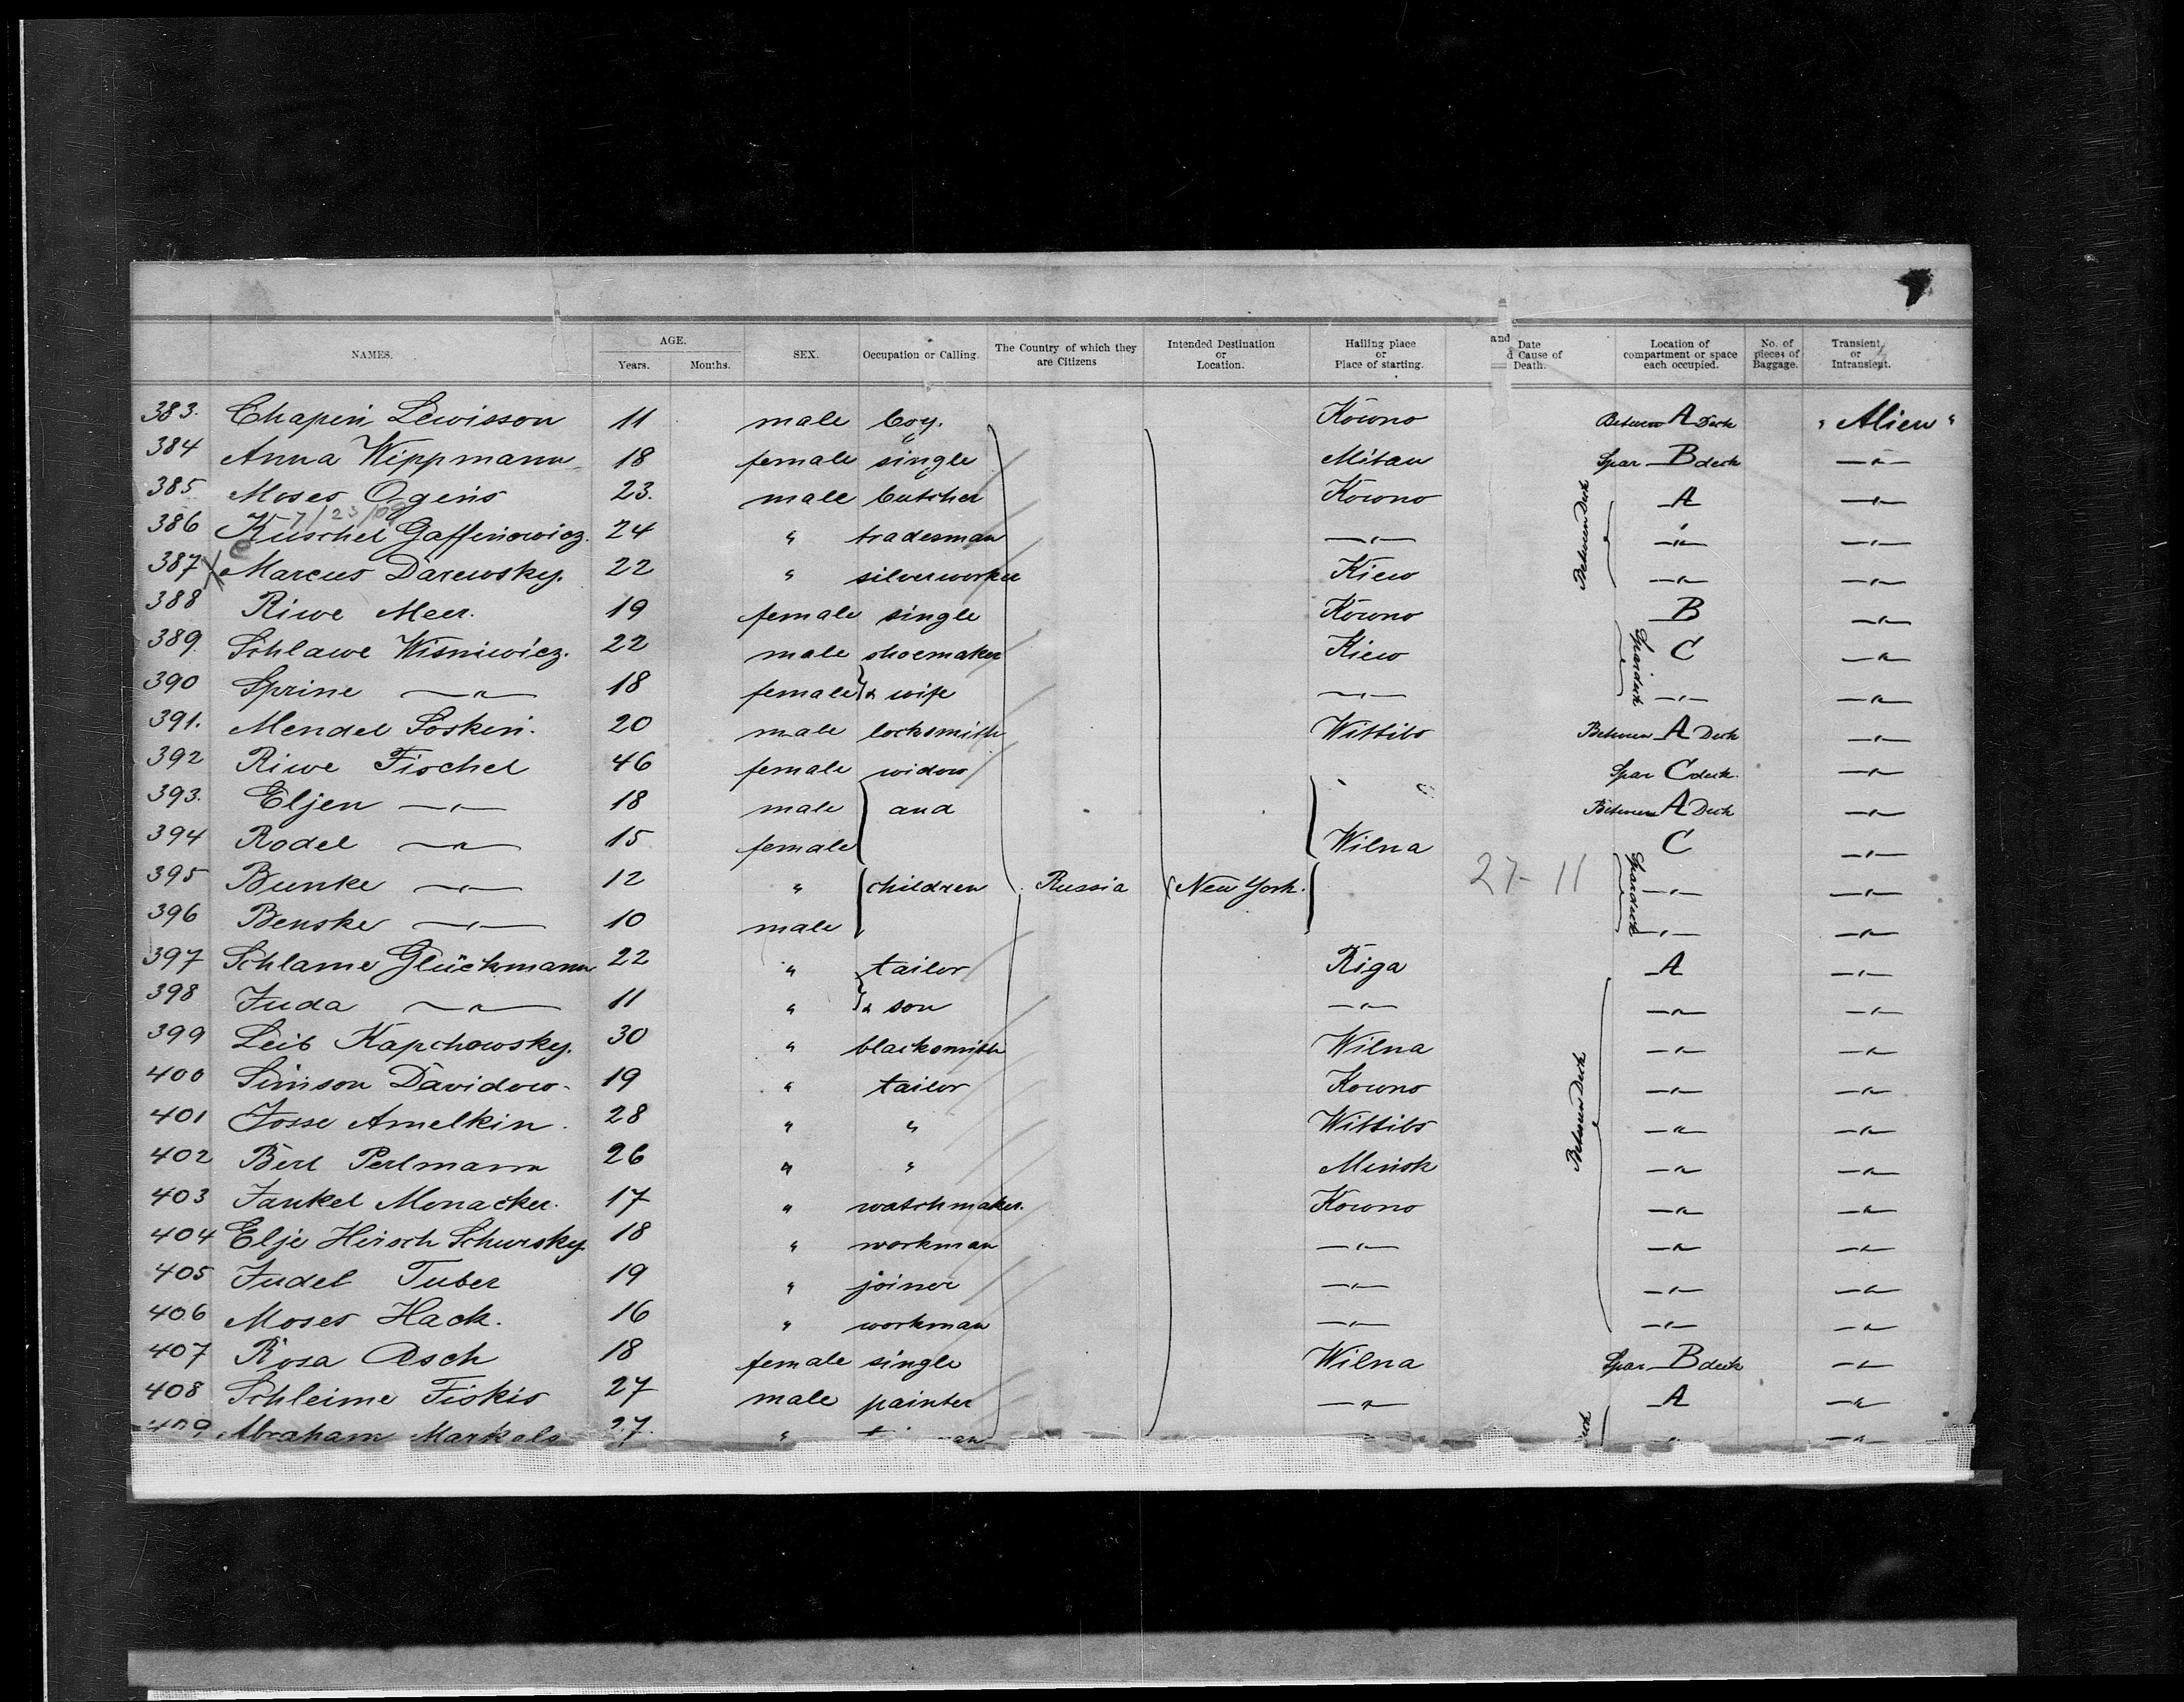 NAMES. AGE. Years. Months. SEX. Occupation or Calling. The Country of which they are Citizens Intended Destination or Location. Hailing place or Place of starting. and Date d Cause of Death. Location of compartment or space each occupied. No. of pieces of Baggage. Transient, or Intransient.
383. Chapein Lewisson 11 male boy. Kowno Between A Deck "Alien"
384 Anna Wippmann 18 female single Mitau Spar B deck —"—
385 Moses Ogens 23. male butcher Kowno A —"—
7/23/09
386 Kuschel Gaffenowicz. 24 " tradesman —"— —"— —"—
387 X e Marcus Darewsky. 22 " silverworker Kiew —"— —"—
Between Deck
388 Riwe Meer. 19 female single Kowno B —"—
389. Schlawe Wisniwicz. 22 male shoemaker Kiew C —"—
Spardeck
390 Sprine —"— 18 female & wife —"— —"— —"—
391. Mendel Soskin. 20 male locksmith Wittibs Between A Deck —"—
392 Riwe Fischel 46 female widow Spar C deck. —"—
393. Eljen —"— 18 male and Between A Deck —"—
394 Rodel —"— 15 female Wilna C —"—
395 Bunke —"— 12 " children Russia New York. 27-11 —"— —"—
Spardeck
396 Benske —"— 10 male —"— —"—
397 Schlame Glückmann 22 " tailor Riga A —"—
398 Juda —"— 11 " & son —"— —"— —"—
399 Leib Kapchowsky. 30 " blacksmith Wilna —"— —"—
400 Simson Davidow. 19 " tailor Kowno —"— —"—
401 Josse Amelkin. 28 " " Wittibs —"— —"—
Between Deck
402 Berl Perlmann 26 " " Minsk —"— —"—
403 Jankel Monacker. 17 " watchmaker. Kowno —"— —"—
404 Elje Hirsch Schursky. 18 " workman —"— —"— —"—
405 Judel Tuber 19 " joiner —"— —"— —"—
406 Moses Hack. 16 " workman —"— —"— —"—
407 Rosa Oesch 18 female single Wilna Spar B deck —"—
408 Schleime Fiskis 27 male painter —"— A —"—
409 Abraham Markels 27. " —"— " —"—